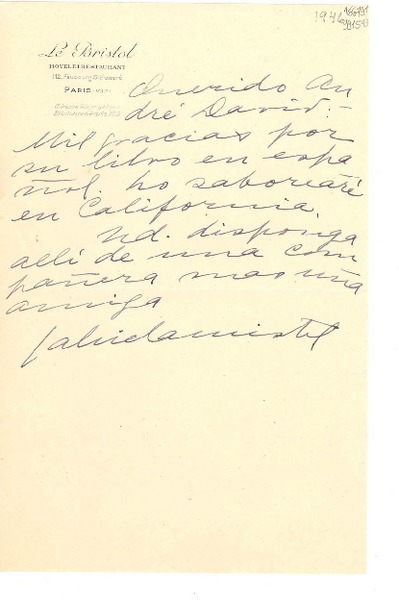 1946
Le Bristol
HOTEL ET RESTAURANT
112, Faubourg St Honoré
PARIS (VIII)
Querido An
dré David:
Mil gracias por
su libro en espa
ñol. Lo saborearé
en California.
Ud. disponga
allí de una com
pañera mas una
amiga
Gabriela Mistral